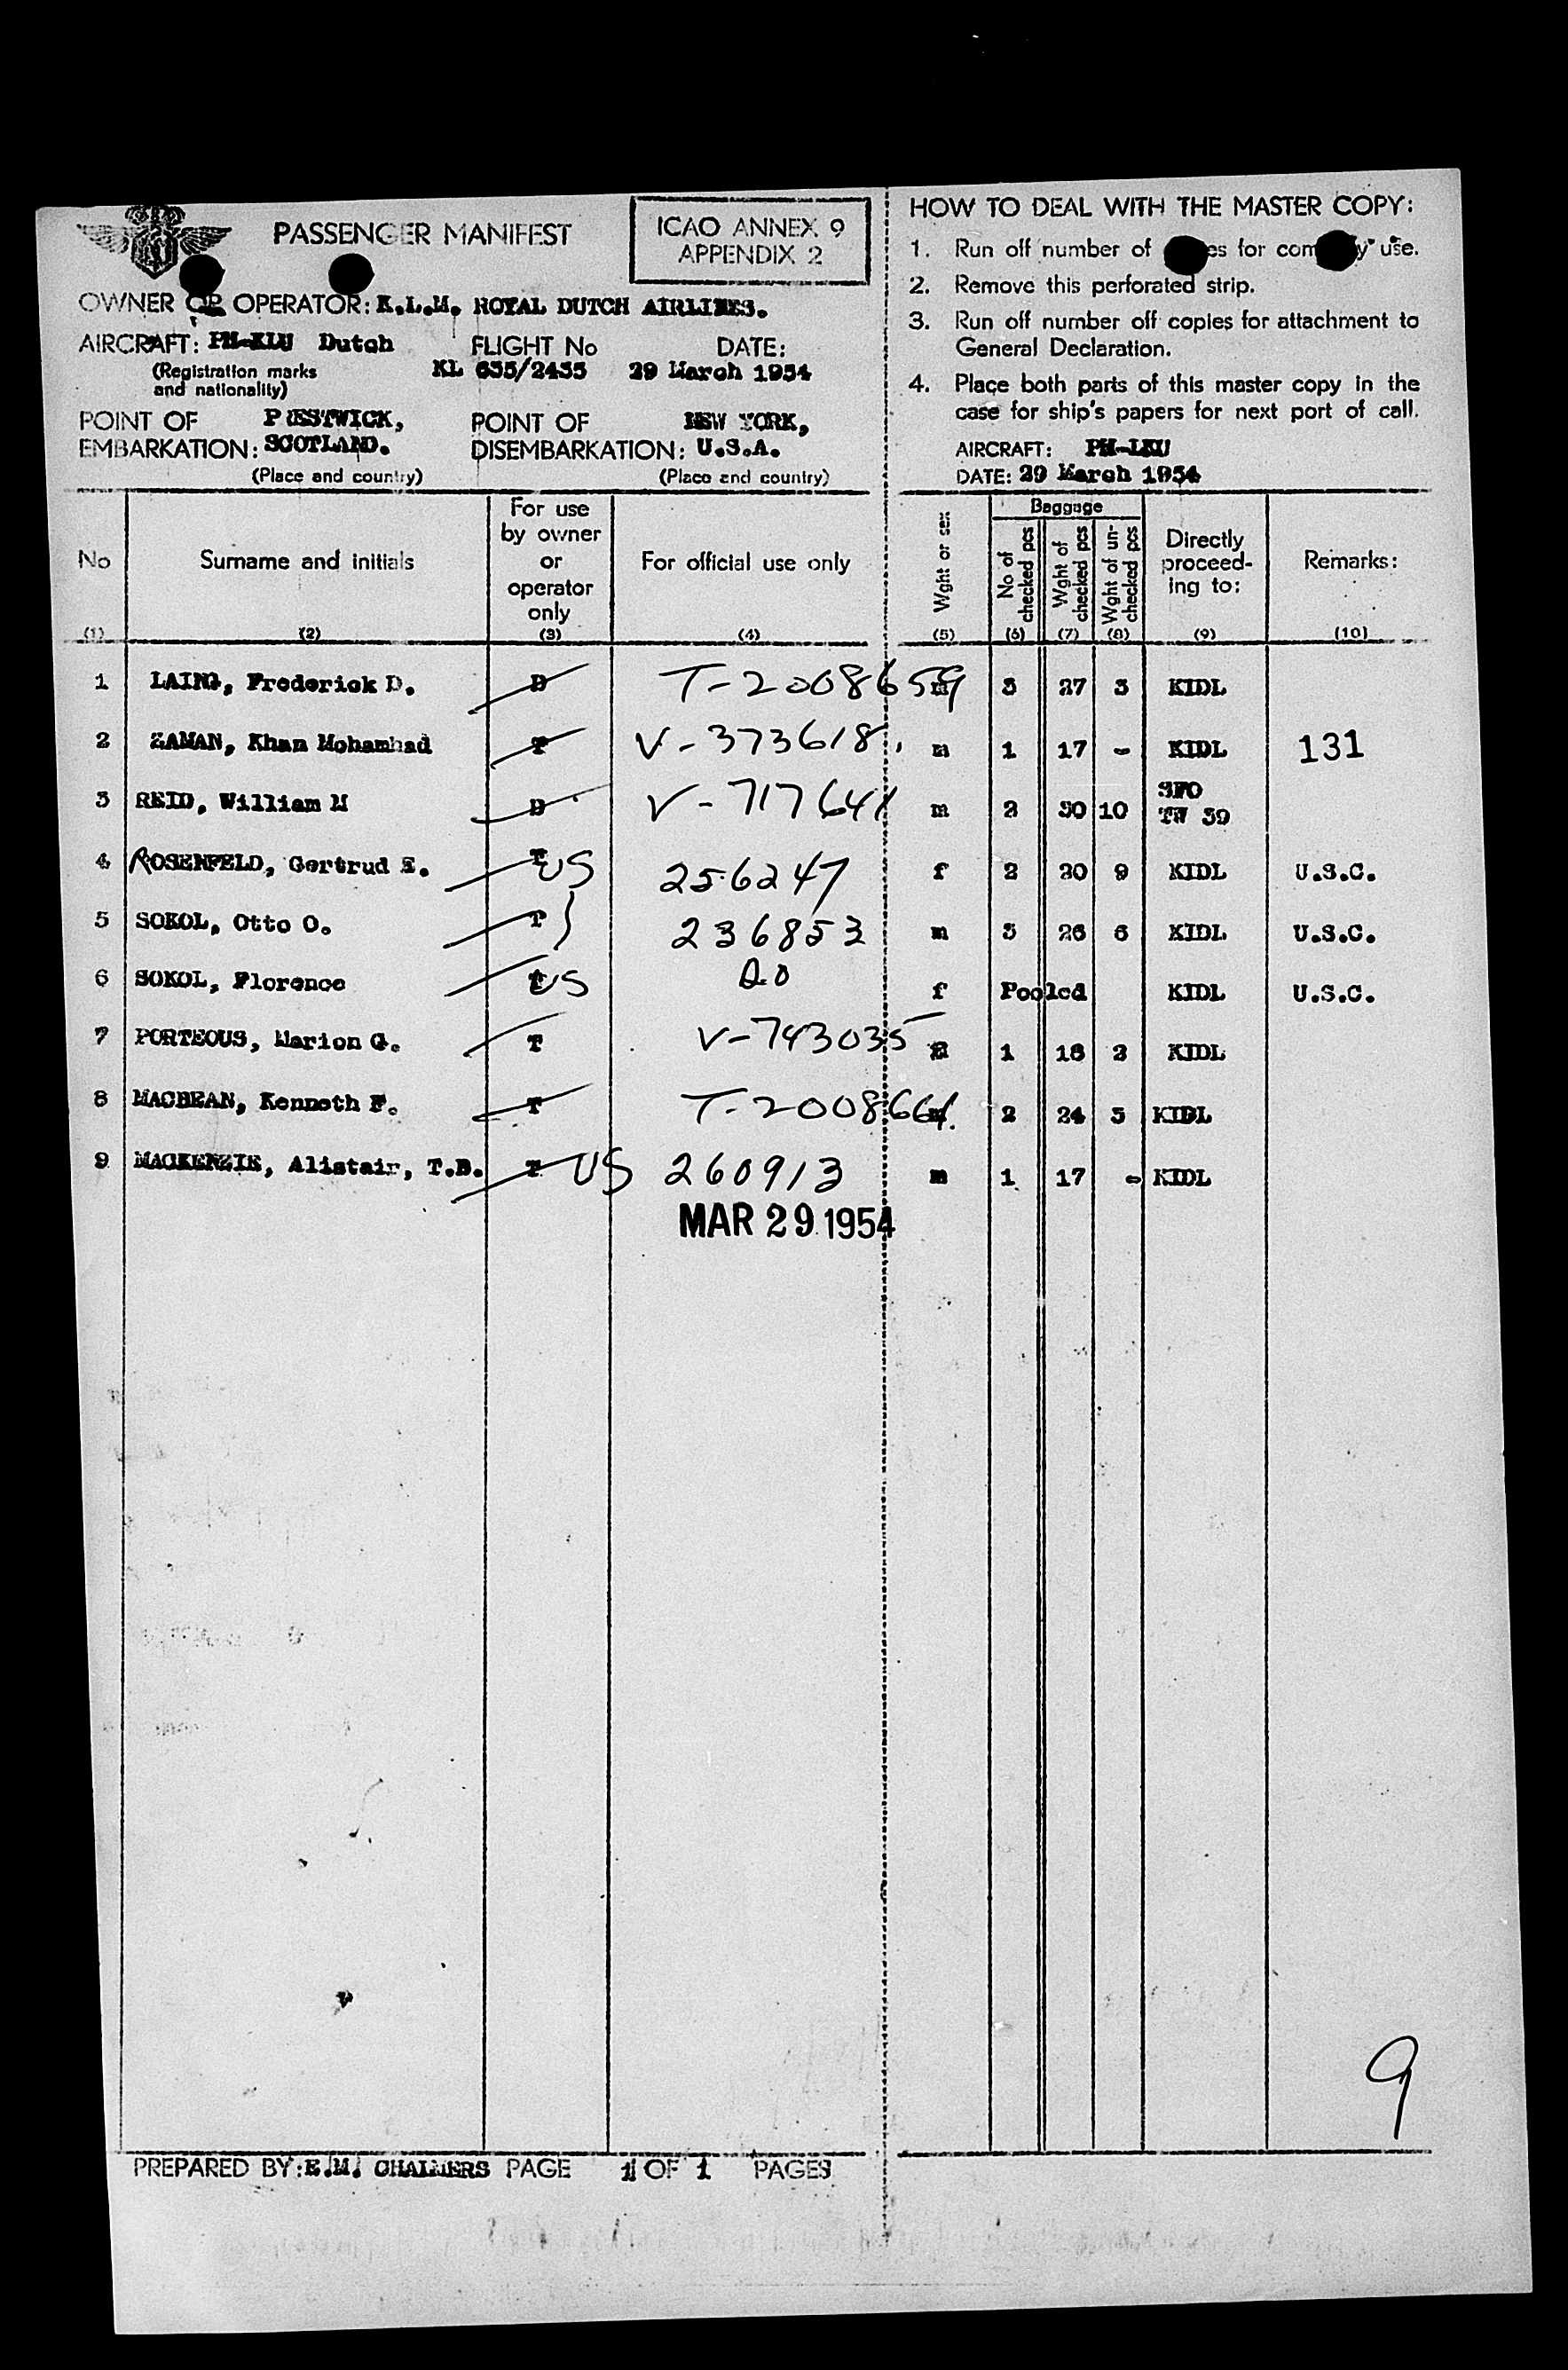 PASSENGER MANIFEST
ICAO ANNEX 9
APPENDIX 2
OWNER OR OPERATOR: K.L.M. ROYAL DUTCH AIRLINES.
AIRCRAFT: PH-KLU Dutch FLIGHT No DATE:
(Registration marks KL 635/2435 29 March 1954
and nationality)
POINT OF PRESTWICK, POINT OF NEW YORK,
EMBARKATION: SCOTLAND. DISEMBARKATION: U.S.A.
(Place and country) (Place and country)
HOW TO DEAL WITH THE MASTER COPY:
1. Run off number of for use.
2. Remove this perforated strip.
3. Run off number off copies for attachment to
General Declaration.
4. Place both parts of this master copy in the
case for ship's papers for next port of call.
AIRCRAFT: PH-LKU
DATE: 29 March 1954
No Surname and initials For use by owner or operator only For official use only Wght or sex Baggage No of checked pcs Wght of checked pcs Wght of un-checked pcs Directly proceed-ing to: Remarks:
(1) (2) (3) (4) (5) (6) (7) (8) (9) (10)
1 LAING, Frederick D. D T-2008659 m 3 27 3 KIDL
2 ZAMAN, Khan Mohamhad T V-373618 m 1 17 - KIDL 131
3 REID, William M D V-717641 m 2 30 10 SFO
TW 39
4 ROSENFELD, Gertrud E. T US 256247 f 2 20 9 KIDL U.S.C.
5 SOKOL, Otto O. T 236853 m 3 26 6 KIDL U.S.C.
6 SOKOL, Florence T US do f Pooled KIDL U.S.C.
7 PORTEOUS, Marion G. T V-743035 1 18 2 KIDL
8 MACBEAN, Kenneth F. T T-2008661 m 2 24 3 KIDL
9 MACKENZIE, Alistair, T.B. T US 260913 m 1 17 - KIDL
MAR 29 1954
9
PREPARED BY: E.M. CHALMERS PAGE 1 OF 1 PAGES